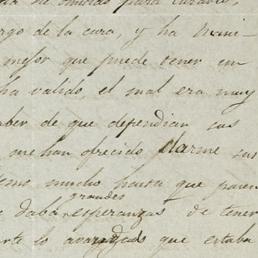 de            para curarse,
rgo de la cura, y ha
mejor que puede tener un
ha valido el mal era muy
aber de que defendian sus
me han ofrecido darme sus
temo mucho hasta que pasen
e daba grandes esperanzas de tener
rte lo avanzado que estaba